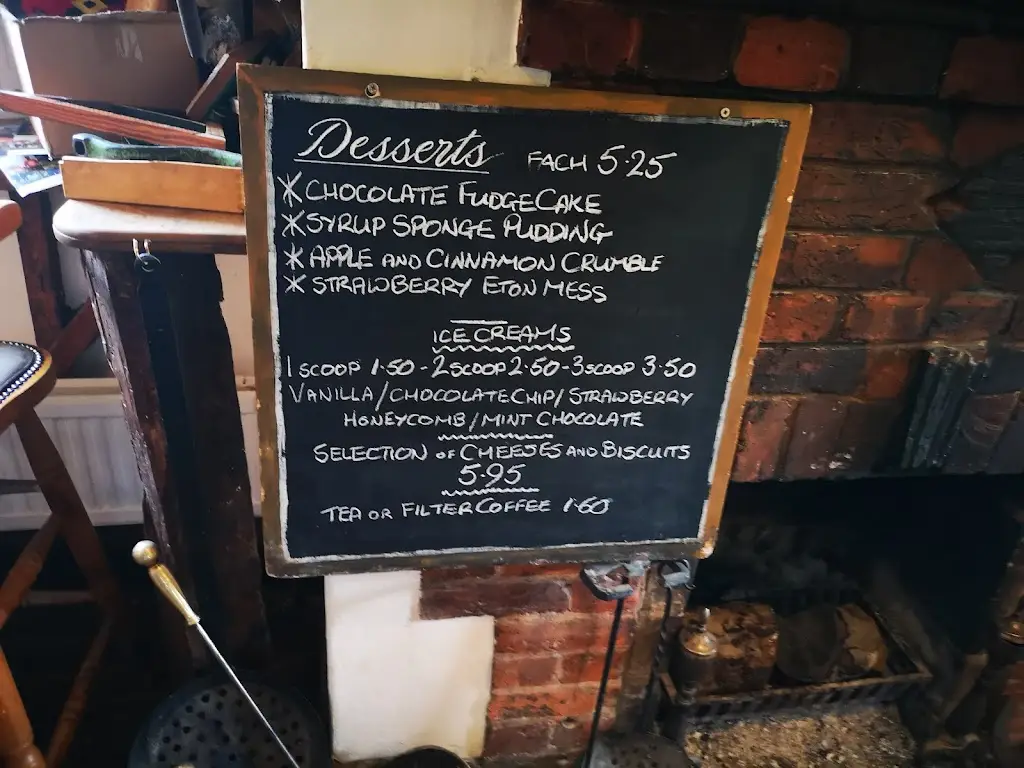 Desserts EACH 5.25
* CHOCOLATE FUDGE CAKE
* SYRUP SPONGE PUDDING
* APPLE AND CINNAMON CRUMBLE
* STRAWBERRY ETON MESS
ICE CREAMS
1 SCOOP 1.50 - 2 SCOOP 2.50 - 3 SCOOP 3.50
VANILLA / CHOCOLATE CHIP / STRAWBERRY
HONEYCOMB / MINT CHOCOLATE
SELECTION OF CHEESES AND BISCUITS
5.95
TEA OR FILTER COFFEE 1.60